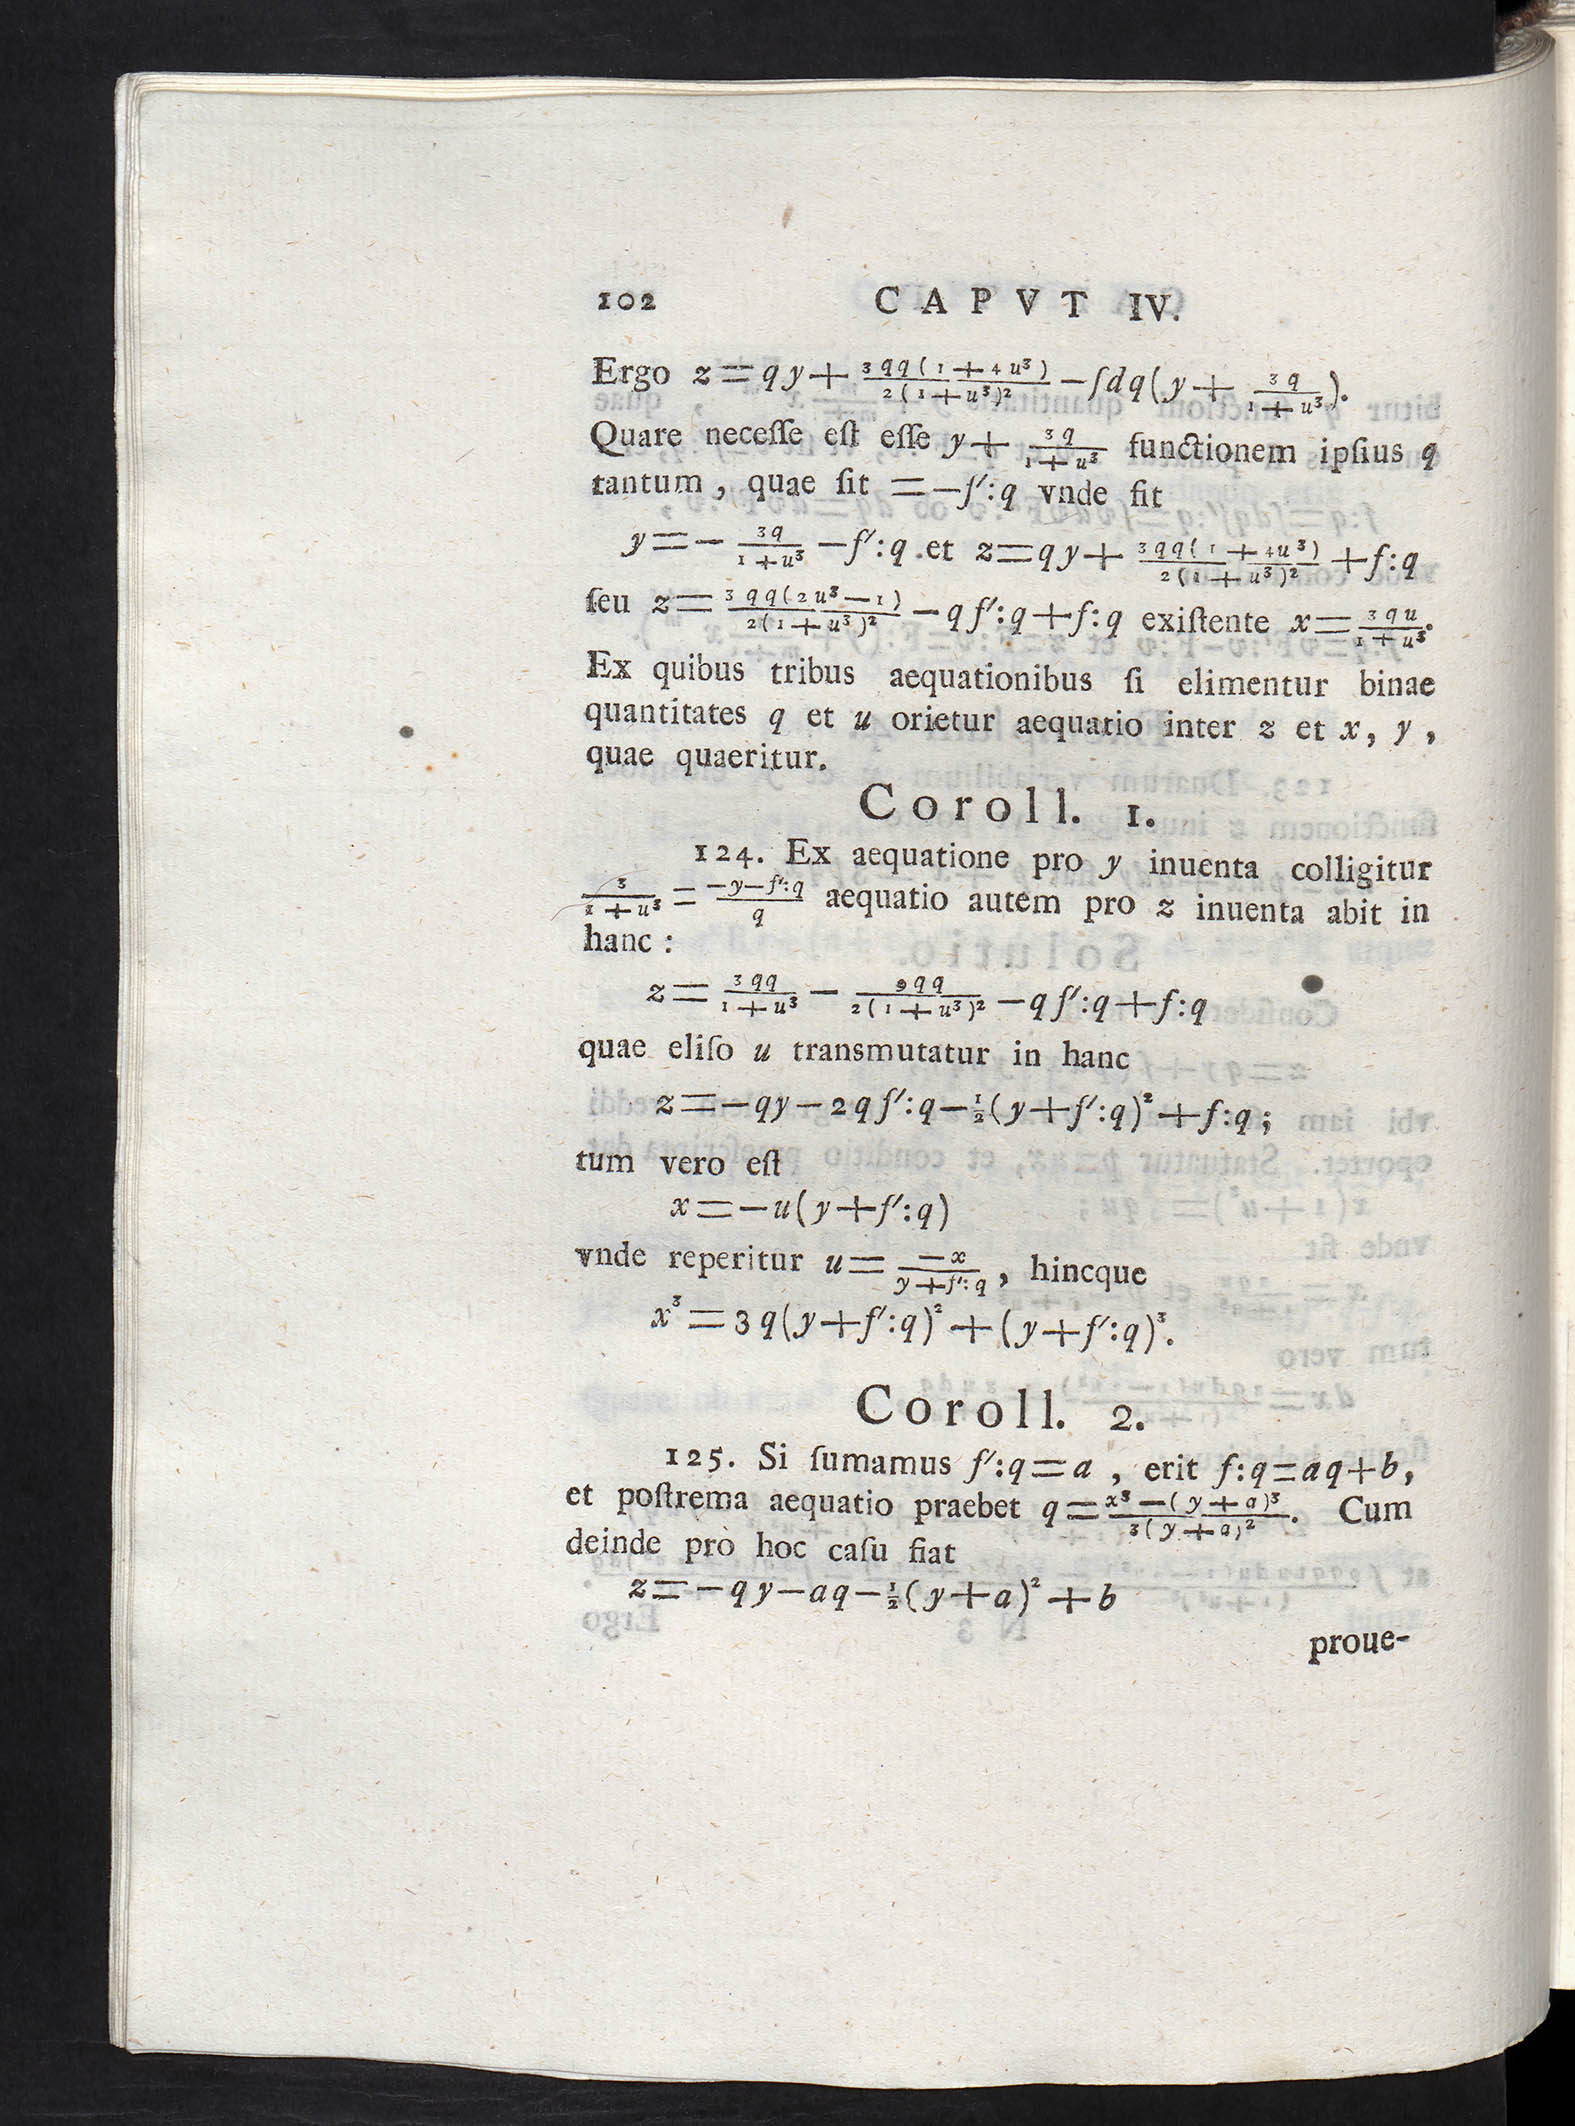 102 CAPVT IV.
Ergo z=qy+\frac{3qq(1+4u³)}{2(1+u³)²}-ſdq(y+\frac{3q}{1+u³}).
Quare neceſſe eſt eſſe y+\frac{3q}{1+u³} functionem ipſius q
tantum, quae ſit =-f′:q vnde fit
y=-\frac{3q}{1+u³}-f′:q et z=qy+\frac{3qq(1+4u³)}{2(1+u³)²}+f:q
ſeu z=\frac{3qq(2u³-1)}{2(1+u³)²}-qf′:q+f:q exiſtente x=\frac{3qu}{1+u³}.
Ex quibus tribus aequationibus ſi elimentur binae
quantitates q et u orietur aequatio inter z et x, y,
quae quaeritur.
Coroll. 1.
124. Ex aequatione pro y inuenta colligitur
\frac{3}{1+u³}=\frac{-y-f′:q}{q} aequatio autem pro z inuenta abit in
hanc:
z=\frac{3qq}{1+u³}-\frac{9qq}{2(1+u³)²}-qf′:q+f:q
quae eliſo u transmutatur in hanc
z=-qy-2qf′:q-½(y+f′:q)²+f:q;
tum vero eſt
x=-u(y+f′:q)
vnde reperitur u=\frac{-x}{y+f′:q}, hincque
x³=3q(y+f′:q)²+(y+f′:q)³.
Coroll. 2.
125. Si ſumamus f′:q=a, erit f:q=aq+b,
et poſtrema aequatio praebet q=\frac{x³-(y+a)³}{3(y+a)²}. Cum
deinde pro hoc caſu fiat
z=-qy-aq-½(y+a)²+b
proue-